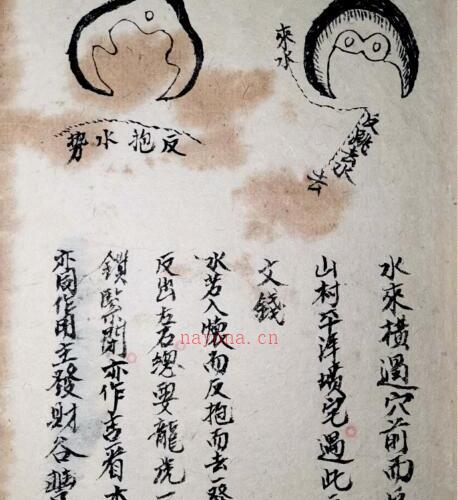 來水
去
反抱水勢
水來橫過穴前而
山村平洋墳宅遇此
文錢
水若入懷而反抱而去一發
反出左右總要龍虎一
鎖緊閉亦作吉看
亦同作用主發財谷
nayona.cn